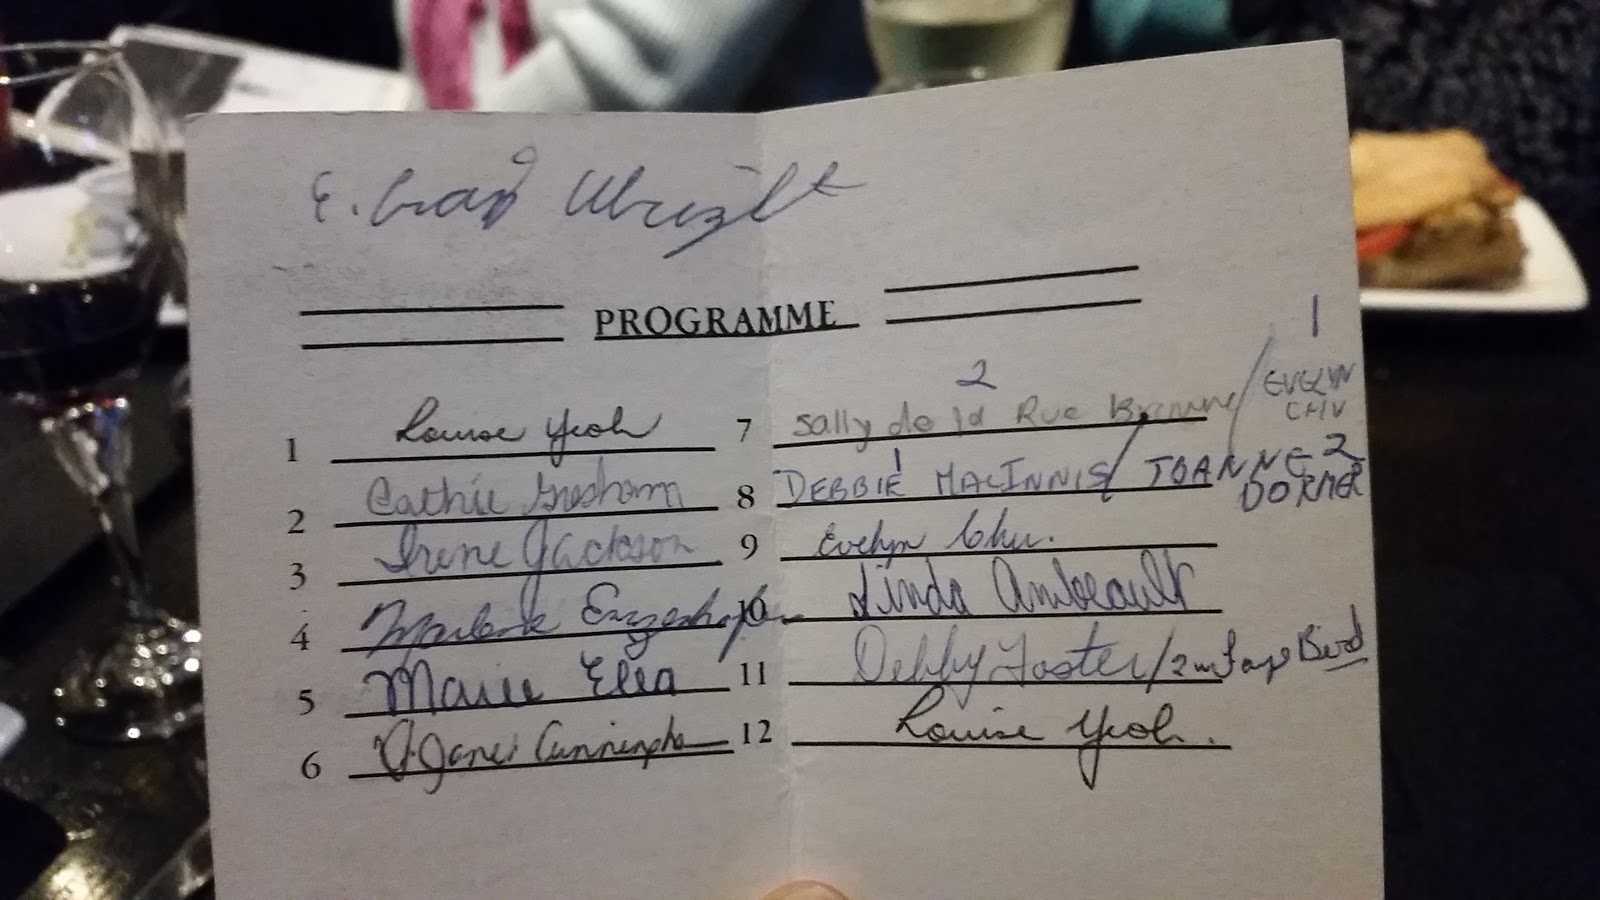 E. Craig Wright
PROGRAMME
1 Louise Yeoh
2 Cathie Gresham
3 Irene Jackson
4 Marlene
5 Marie Elia
6 Janei Cunningha
2 1
7 Sally de la Rue Browne / EVELYN CHU
1 2
8 DEBBIE MACINNIS / JOANNE DORNER
9 Evelyn Chu.
10 Linda Ambeault
11 Debby Foster / 2nd Faye Bird
12 Louise Yeoh.